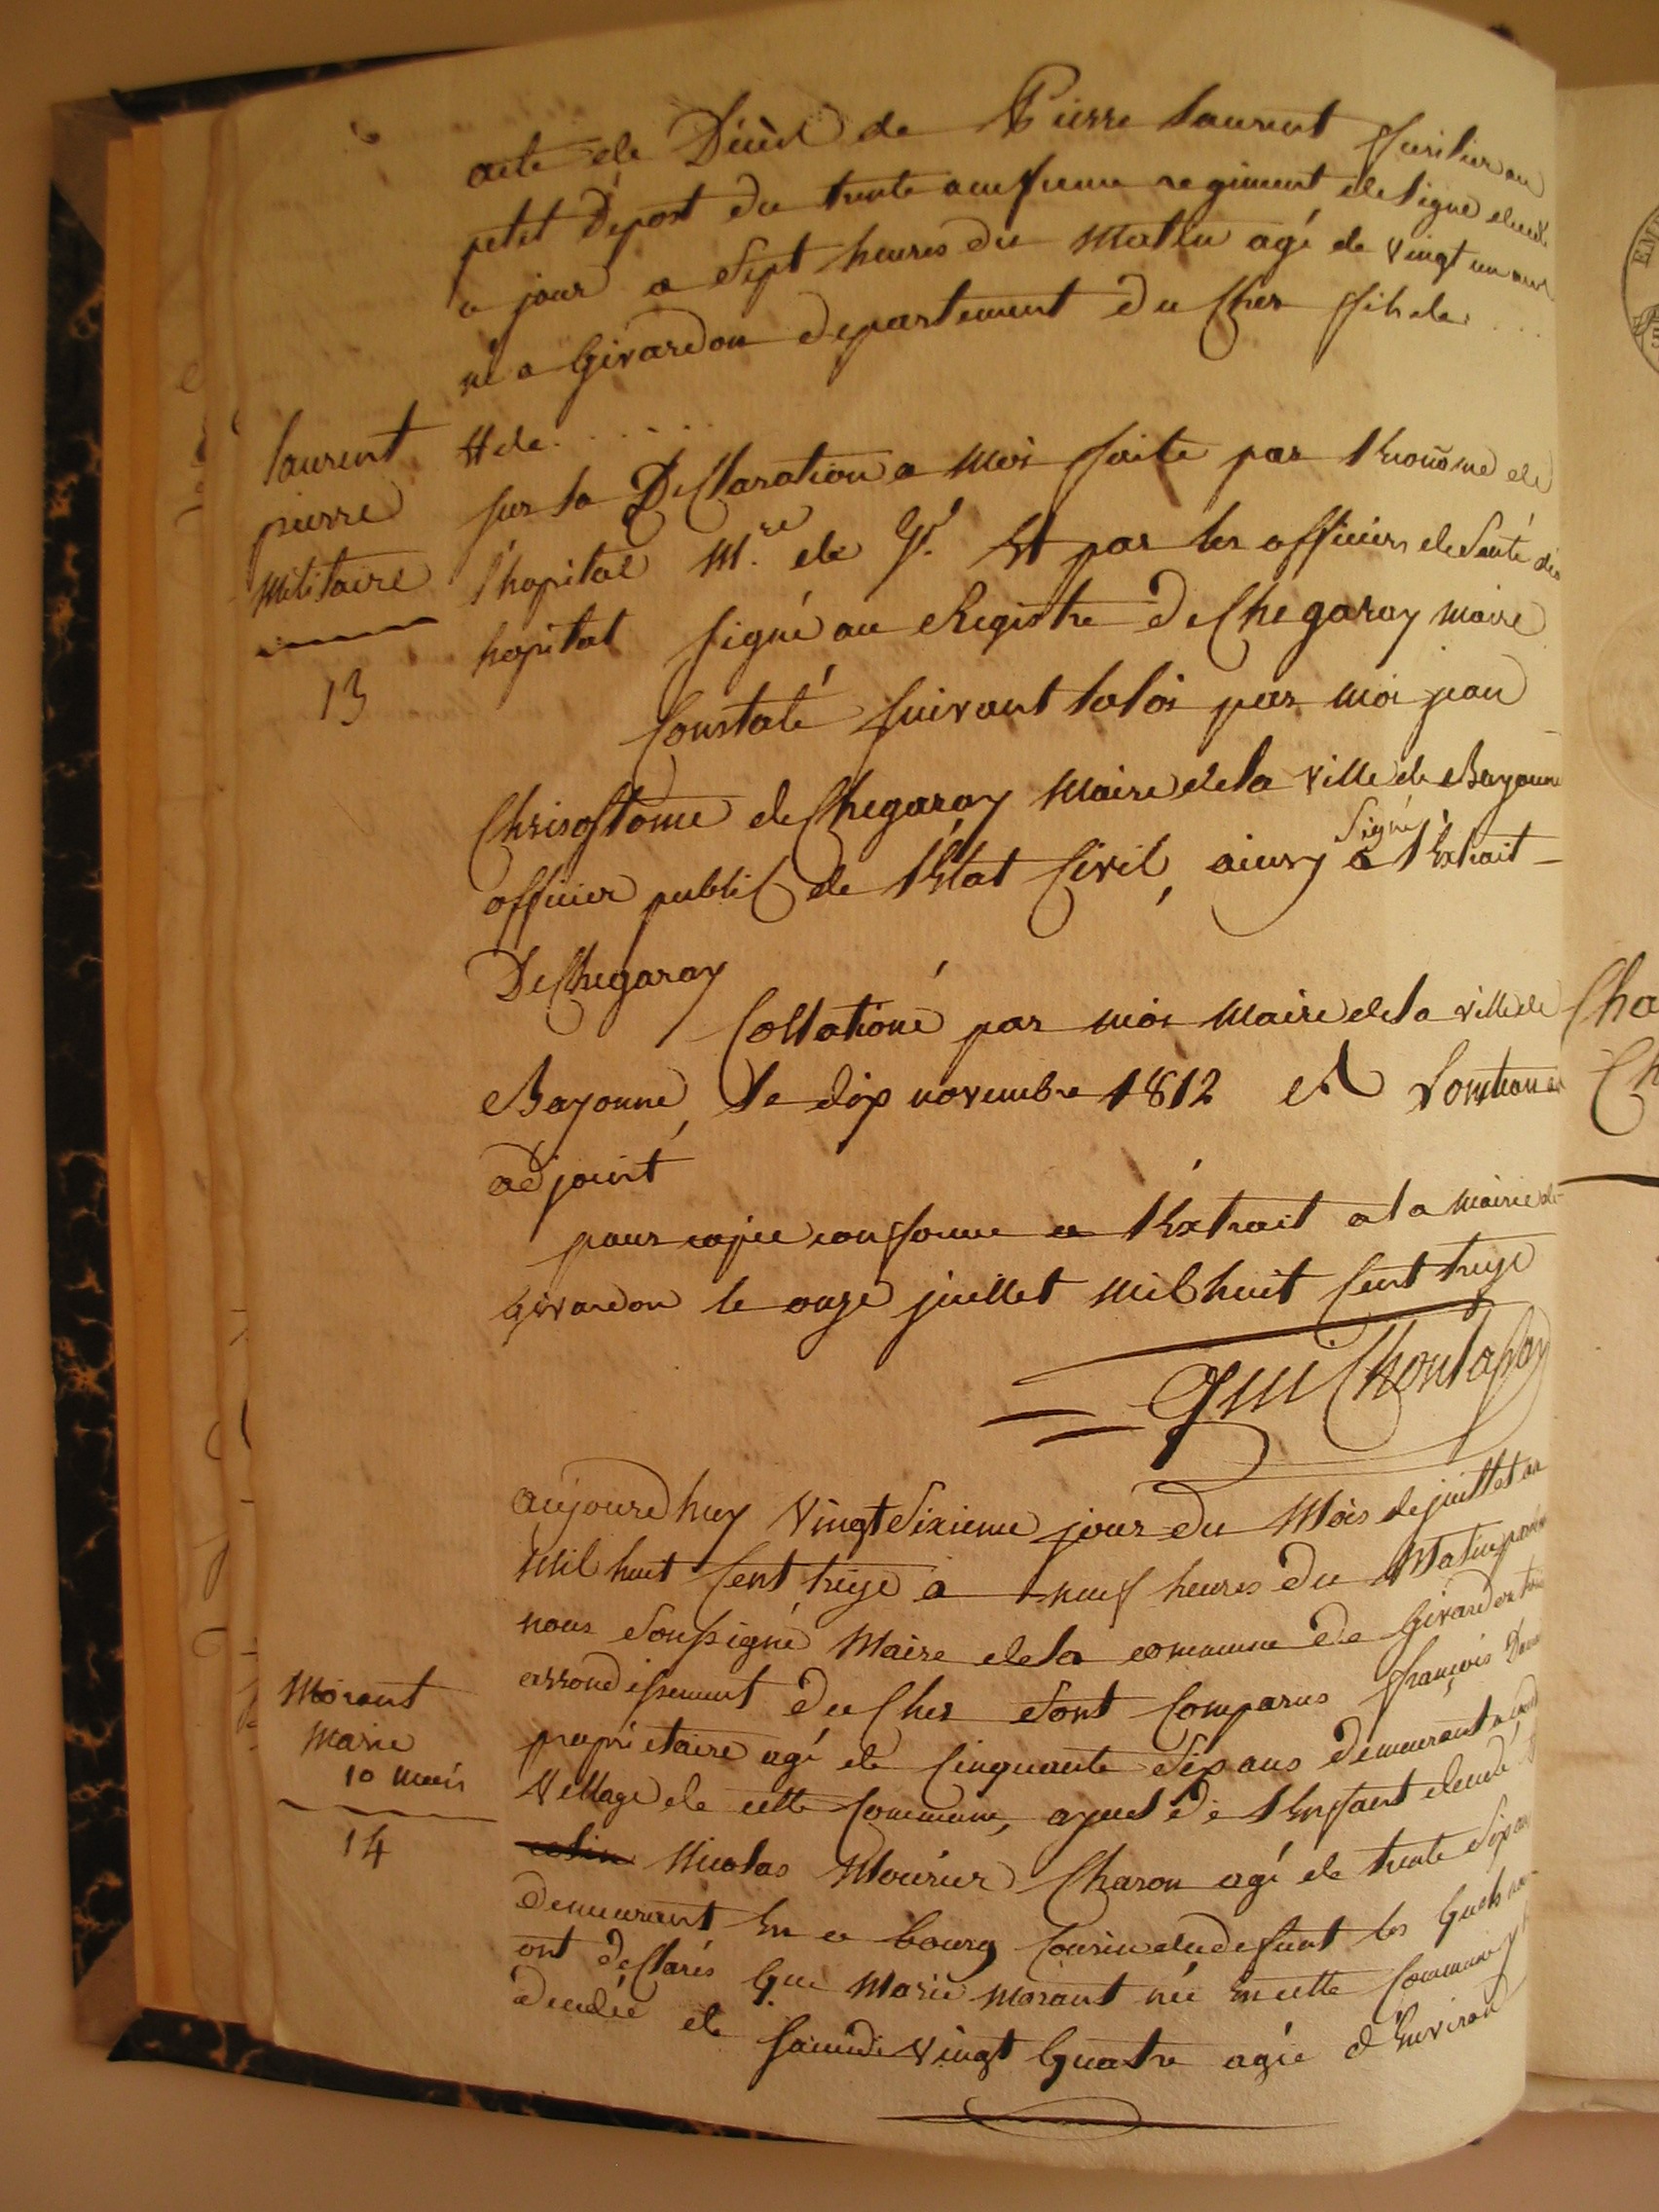 acte de Décès de Pierre laurent fusilier au
petit dépost du trente onzieme regiment de ligne decedé
ce jour a sept heures du matin agé de vingt un ans
né a Girardon departement du Cher fils de . . .
laurent
pierre
militaire
13
Et de . . . . .
sur la Declaration a moi faite par l'Econome de
l'hopital M.re de Gt. Et par les officiers de santé du
hopital signé au Registre de Chegaray maire
Constaté suivant la loi par moi jean
Chrisostome de Chegaray maire de la ville de Bayonne
officier public de l'Etat Civil, signé a l'Extrait
De Chegaray
Collationé par moi maire de la ville de
Bayonne, le dix novembre 1812
adjoint
pour copie conforme a l'Extrait a la mairie de
Girardon le onze juillet mil huit Cent treize
aujourdhuy vingt sixieme jour du mois de juillet an
mil huit Cent treize a neuf heures du matin
nous soussigné Maire de la commune de
arrondissement du Cher sont Comparus françois
propriétaire agé de Cinquante six ans demeurant
village de cette Commune, de l'Enfant decedé
Morant
Marie
10 mois
14
Nicolas Charon agé de trente six ans
demeurant En ce bourg Cousin du defunt les Quels
ont declarés Que Marie Morant née En cette Commune
decedée de samedi vingt Quatre agée d'Environ
Cha
Ch
EM